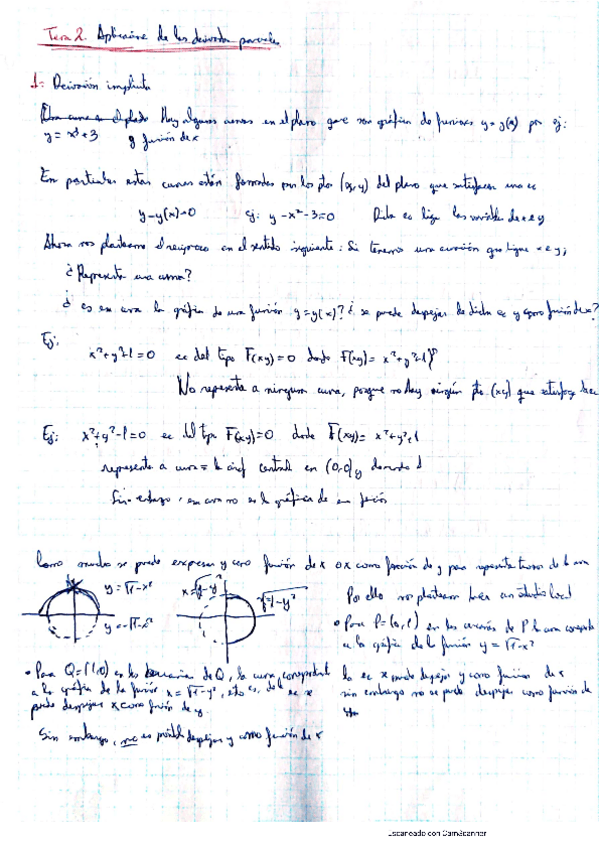 Tema 2. Aplicaciones de las derivadas parciales
1- Derivación implícita
Hay algunas curvas en el plano que son gráficas de funciones y=y(x) por ej:
y = x²+3 y función de x
En particular estas curvas están formadas por los ptos (x,y) del plano que satisfacen una ec
y-y(x)=0 ej: y-x²-3=0 Dicha ec liga las variables x e y
Ahora nos planteamos el recíproco en el sentido siguiente: Si tenemos una ecuación que ligue x e y,
¿Representa una curva?
¿es esa curva la gráfica de una función y=y(x)? ¿se puede despejar de dicha ec y como función de x?
Ej:
x²+y²+1=0 ec del tipo F(x,y)=0 donde F(x,y)= x²+y²+1
No representa a ninguna curva, porque no hay ningún pto (x,y) que satisfaga la ec
Ej: x²+y²-1=0 ec del tipo F(x,y)=0 donde F(x,y)= x²+y²-1
representa a curva = la circf central en (0,0) y de radio 1
Sin embargo, esa curva no es la gráfica de una función
Como mucho se puede expresar y como función de x o x como función de y para representar trozos de la curva
y=√1-x²
y=-√1-x²
x=√1-y²
x=√1-y²
Por ello nos planteamos hacer un estudio local
• Para P=(0,1) en las cercanías de P la curva corresponde
a la gráfica de la función y=√1-x²
la ec se puede despejar y como función de x
sin embargo no se puede despejar como función de
• Para Q=(1,0) en las cercanías de Q, la curva corresponde
a la gráfica de la función x=√1-y², esto es, de la ec se
puede despejar x como función de y.
Sin embargo, no es posible despejar y como función de x
Escaneado con CamScanner